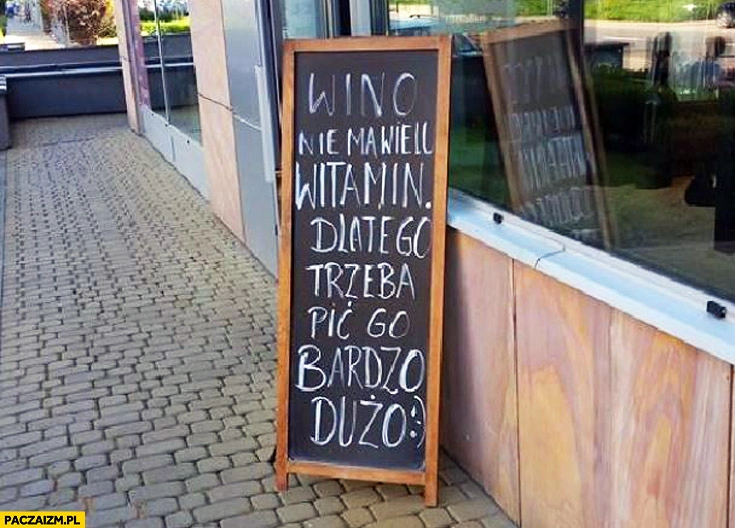 WINO
NIE MA WIELU
WITAMIN.
DLATEGO
TRZEBA
PIĆ GO
BARDZO
DUŻO:)
PACZAIZM.PL